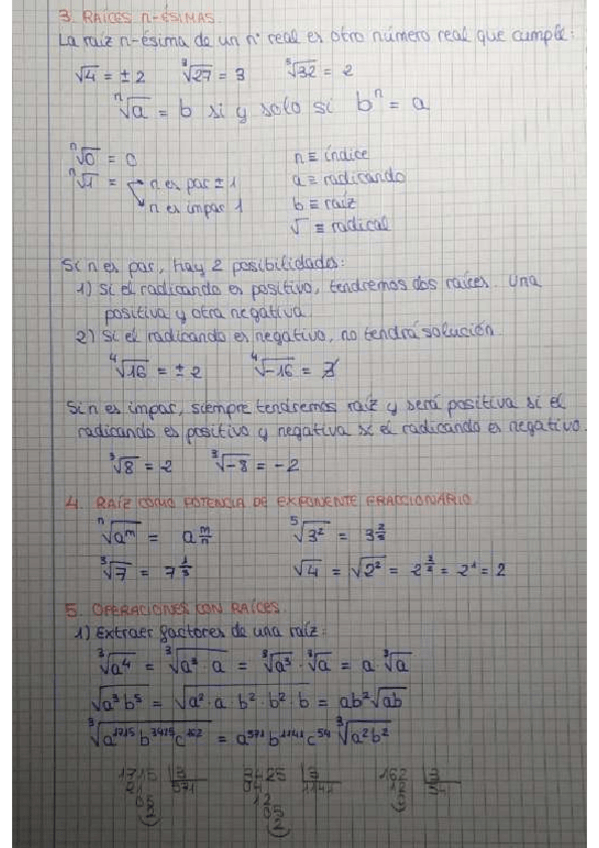 3. RAÍCES n-ÉSIMAS.
La raíz n-ésima de un nº real es otro número real que cumple:
√4 = ±2 ³√27 = 3 ⁵√32 = 2
ⁿ√a = b si y solo si bⁿ = a
ⁿ√0 = 0 n ≡ índice
ⁿ√1 = n es par ±1 a ≡ radicando
n es impar 1 b ≡ raíz
√ ≡ radical
Si n es par, hay 2 posibilidades:
1) Si el radicando es positivo, tendremos dos raíces. Una
positiva y otra negativa.
2) Si el radicando es negativo, no tendrá solución.
⁴√16 = ±2 ⁴√-16 = ∄
Si n es impar, siempre tendremos raíz y será positiva si el
radicando es positivo y negativa si el radicando es negativo.
³√8 = 2 ³√-8 = -2
4. RAÍZ COMO POTENCIA DE EXPONENTE FRACCIONARIO
ⁿ√aᵐ = a^(m/n) ⁵√3² = 3^(2/5)
³√7 = 7^(1/3) √4 = √2² = 2^(2/2) = 2¹ = 2
5. OPERACIONES CON RAÍCES.
1) Extraer factores de una raíz:
³√a⁴ = ³√a³·a = ³√a³ · ³√a = a ³√a
√a³b⁵ = √a²·a·b²·b²·b = ab²√ab
³√a¹⁷¹⁵b³⁴²⁵c¹⁶² = a⁵⁷¹b¹¹⁴¹c⁵⁴ ³√a²b²
1715 |3 3425 |3 162 |3
21 571 04 1141 12 54
05 12 0
2 05
2